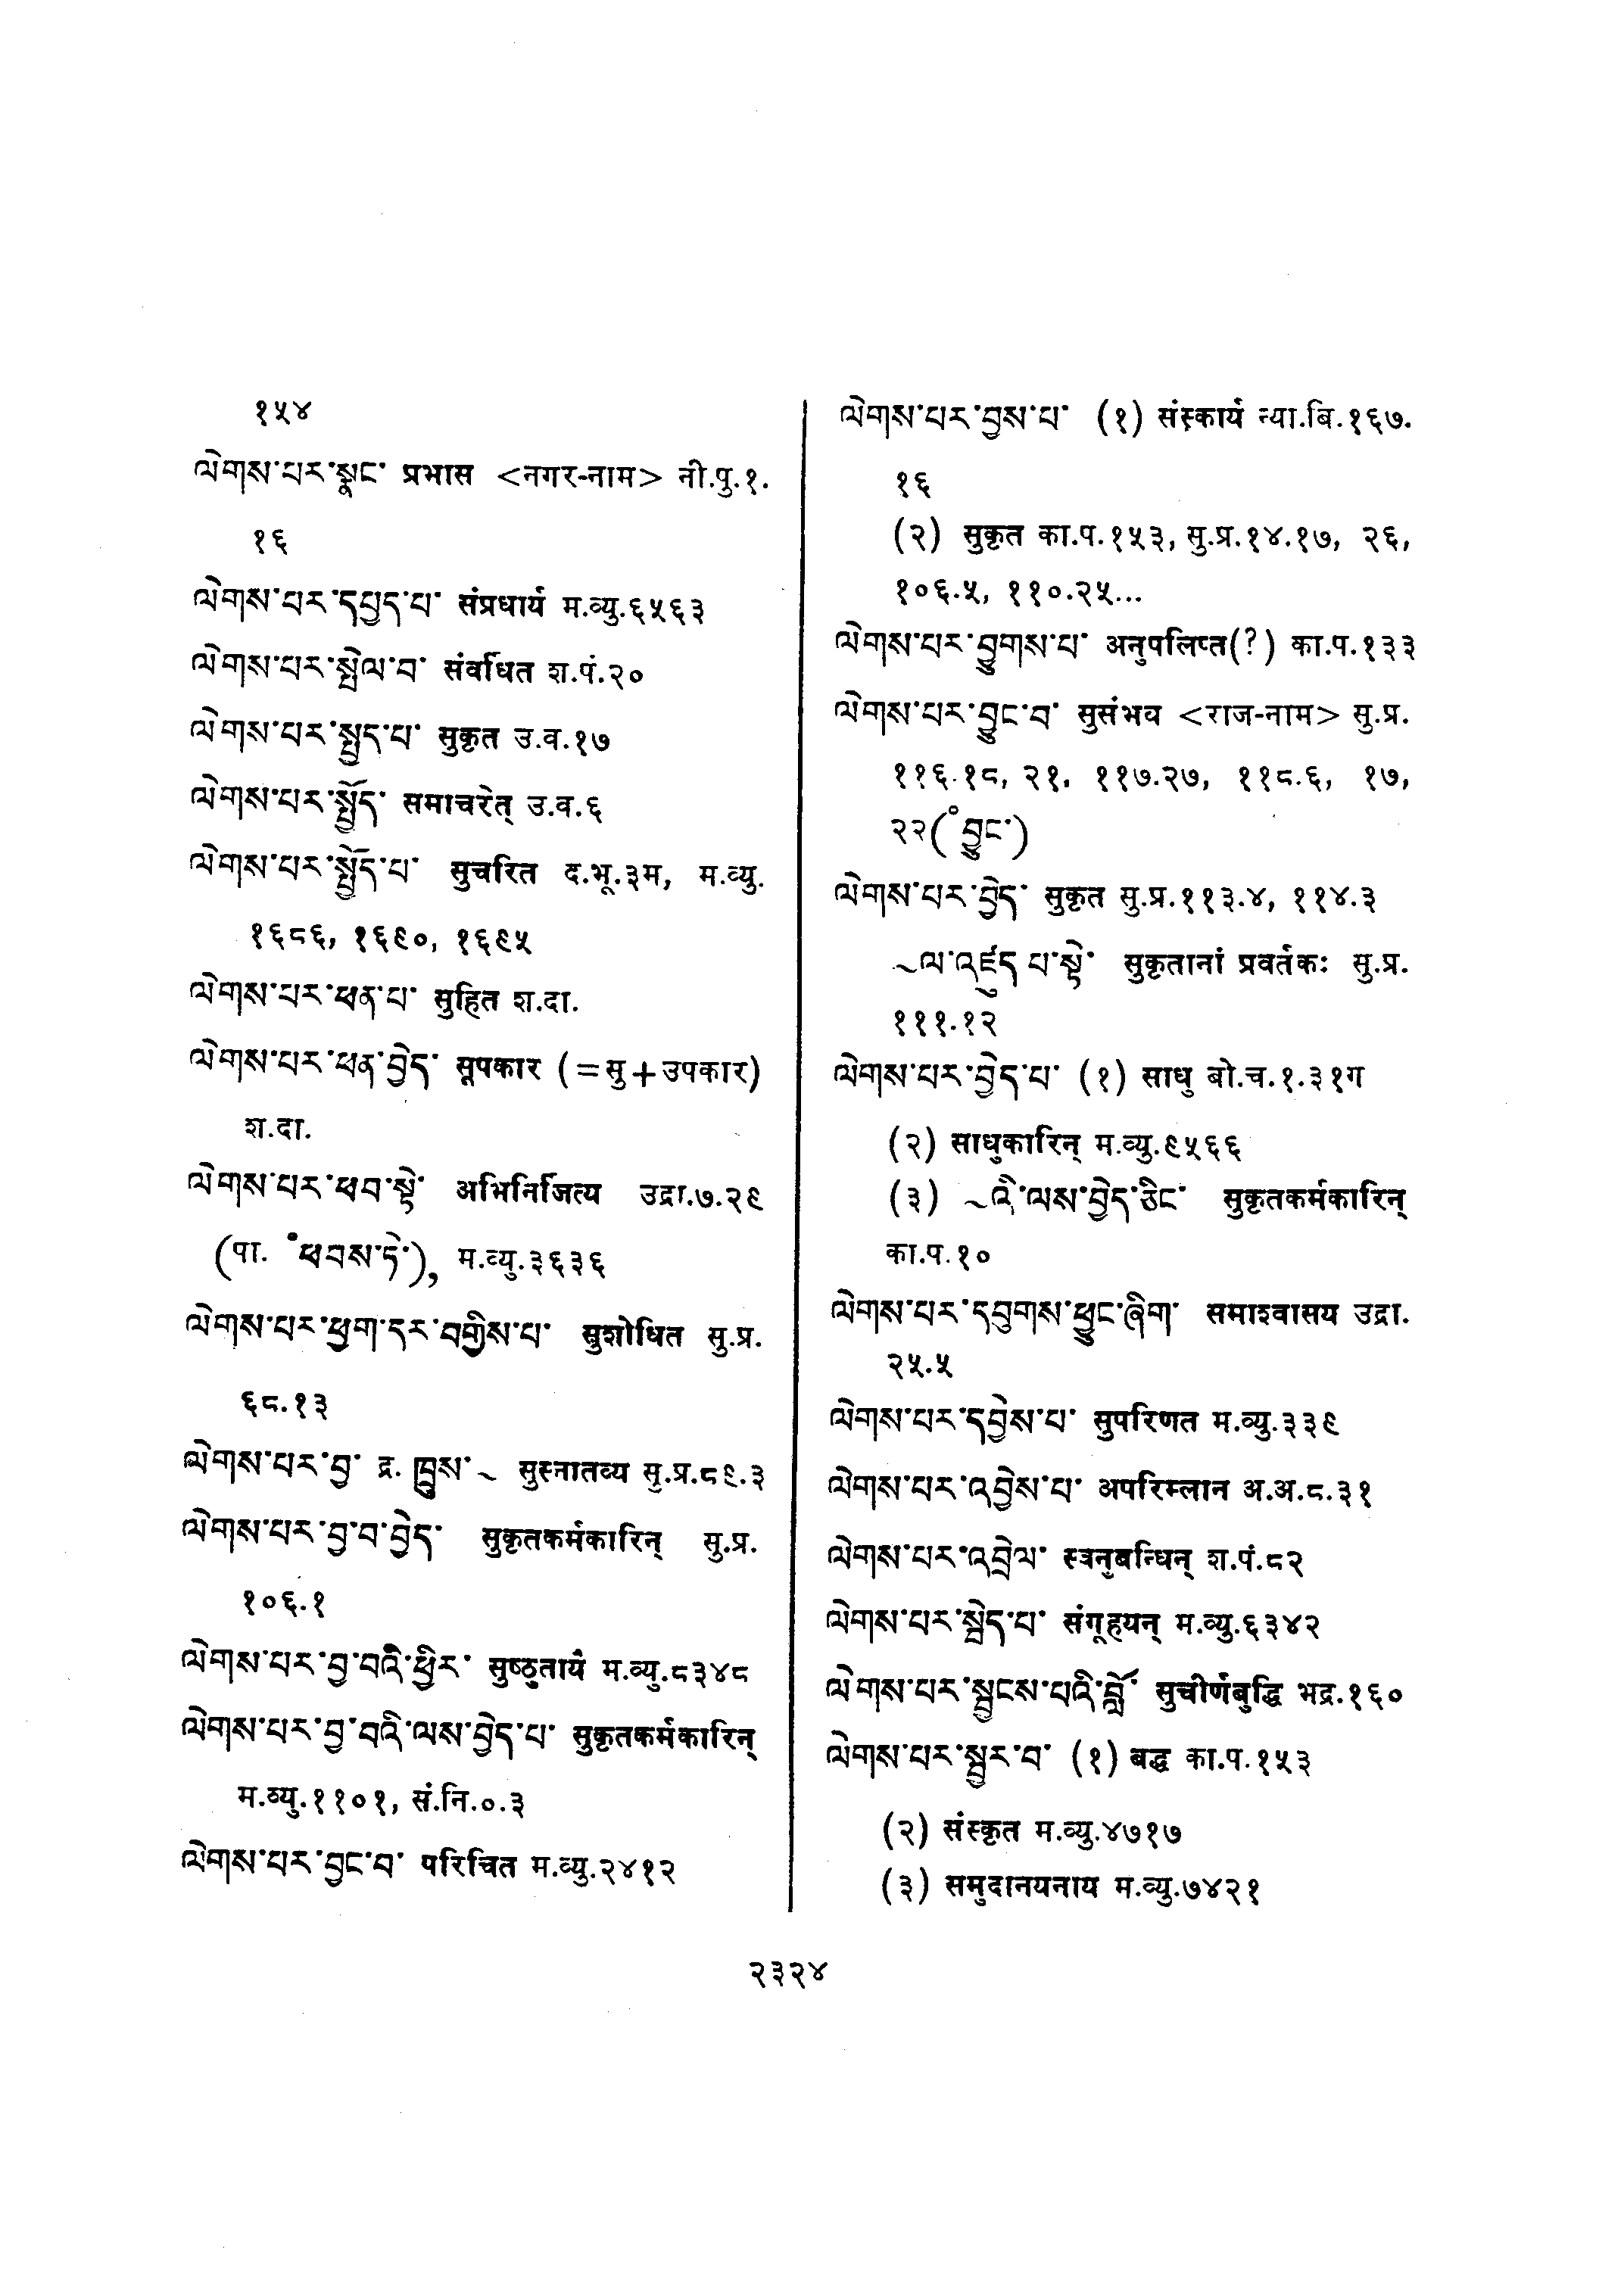 १५४
ལེགས་པར་སྣང་ प्रभास <नगर-नाम> नी.पु.१.
१६
ལེགས་པར་དཔྱད་པ་ संप्रधार्य म.व्यु.६५६३
ལེགས་པར་སྤེལ་བ་ संवर्धित श.पं.२०
ལེགས་པར་སྤྱད་པ་ सुकृत उ.व.१७
ལེགས་པར་སྤྱོད་ समाचरेत् उ.व.६
ལེགས་པར་སྤྱོད་པ་ सुचरित द.भू.३म, म.व्यु.
१६८६, १६९०, १६९५
ལེགས་པར་ཕན་པ་ सुहित श.दा.
ལེགས་པར་ཕན་བྱེད་ सूपकार (=सु+उपकार)
श.दा.
ལེགས་པར་ཕབ་སྟེ་ अभिनिर्जित्य उद्रा.७.२९
(पा. ༠ཕབས་ཏེ་), म.व्यु.३६३६
ལེགས་པར་ཕྱག་དར་བགྱིས་པ་ सुशोधित सु.प्र.
६८.१३
ལེགས་པར་བྱ་ द्र. ཁྲུས་~ सुस्नातव्य सु.प्र.८९.३
ལེགས་པར་བྱ་བ་བྱེད་ सुकृतकर्मकारिन् सु.प्र.
१०६.१
ལེགས་པར་བྱ་བའི་ཕྱིར་ सुष्ठुतायं म.व्यु.८३४८
ལེགས་པར་བྱ་བའི་ལས་བྱེད་པ་ सुकृतकर्मकारिन्
म.व्यु.११०१, सं.नि.०.३
ལེགས་པར་བྱང་བ་ परिचित म.व्यु.२४१२
ལེགས་པར་བྱས་པ་ (१) संस्कार्य न्या.बि.१६७.
१६
(२) सुकृत का.प.१५३, सु.प्र.१४.१७, २६,
१०६.५, ११०.२५...
ལེགས་པར་བྱུགས་པ་ अनुपलिप्त(?) का.प.१३३
ལེགས་པར་བྱུང་བ་ सुसंभव <राज-नाम> सु.प्र.
११६.१८, २१, ११७.२७, ११८.६, १७,
२२(༠བྱུང་)
ལེགས་པར་བྱེད་ सुकृत सु.प्र.११३.४, ११४.३
~ལ་འཛུད་པ་སྟེ་ सुकृतानां प्रवर्तकः सु.प्र.
१११.१२
ལེགས་པར་བྱེད་པ་ (१) साधु बो.च.१.३१ग
(२) साधुकारिन् म.व्यु.९५६६
(३) ~འི་ལས་བྱེད་ཅིང་ सुकृतकर्मकारिन्
का.प.१०
ལེགས་པར་དབུགས་ཕྱུང་ཞིག་ समाश्वासय उद्रा.
२५.५
ལེགས་པར་དབྱེས་པ་ सुपरिणत म.व्यु.३३९
ལེགས་པར་འབྱེས་པ་ अपरिम्लान अ.अ.८.३१
ལེགས་པར་འབྲེལ་ स्वनुबन्धिन् श.पं.८२
ལེགས་པར་སྦེད་པ་ संगूहयन् म.व्यु.६३४२
ལེགས་པར་སྦྱངས་པའི་བློ་ सुचीर्णबुद्धि भद्र.१६०
ལེགས་པར་སྦྱར་བ་ (१) बद्ध का.प.१५३
(२) संस्कृत म.व्यु.४७१७
(३) समुदानयनाय म.व्यु.७४२१
२३२४